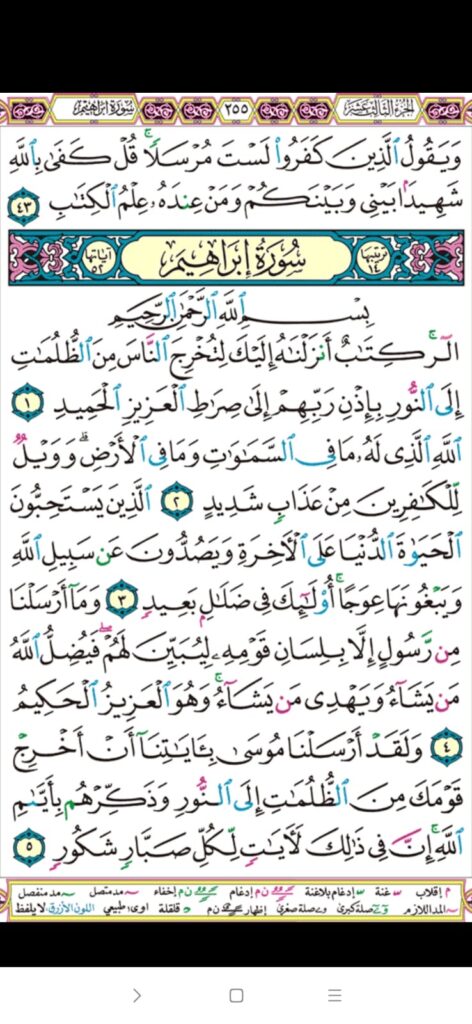 الجزء الثالث عشر ٢٥٥ سورة إبراهيم
وَيَقُولُ ٱلَّذِينَ كَفَرُوا۟ لَسْتَ مُرْسَلًا ۚ قُلْ كَفَىٰ بِٱللَّهِ
شَهِيدًۢا بَيْنِى وَبَيْنَكُمْ وَمَنْ عِندَهُۥ عِلْمُ ٱلْكِتَـٰبِ ٤٣
ترتيبها ١٤ سُورَةُ إِبْرَاهِيمَ آياتها ٥٢
بِسْمِ ٱللَّهِ ٱلرَّحْمَـٰنِ ٱلرَّحِيمِ
الٓر ۚ كِتَـٰبٌ أَنزَلْنَـٰهُ إِلَيْكَ لِتُخْرِجَ ٱلنَّاسَ مِنَ ٱلظُّلُمَـٰتِ
إِلَى ٱلنُّورِ بِإِذْنِ رَبِّهِمْ إِلَىٰ صِرَٰطِ ٱلْعَزِيزِ ٱلْحَمِيدِ ١
ٱللَّهِ ٱلَّذِى لَهُۥ مَا فِى ٱلسَّمَـٰوَٰتِ وَمَا فِى ٱلْأَرْضِ ۗ وَوَيْلٌ
لِّلْكَـٰفِرِينَ مِنْ عَذَابٍ شَدِيدٍ ٢ ٱلَّذِينَ يَسْتَحِبُّونَ
ٱلْحَيَوٰةَ ٱلدُّنْيَا عَلَى ٱلْـَٔاخِرَةِ وَيَصُدُّونَ عَن سَبِيلِ ٱللَّهِ
وَيَبْغُونَهَا عِوَجًا ۚ أُو۟لَـٰٓئِكَ فِى ضَلَـٰلٍۭ بَعِيدٍ ٣ وَمَآ أَرْسَلْنَا
مِن رَّسُولٍ إِلَّا بِلِسَانِ قَوْمِهِۦ لِيُبَيِّنَ لَهُمْ ۖ فَيُضِلُّ ٱللَّهُ
مَن يَشَآءُ وَيَهْدِى مَن يَشَآءُ ۚ وَهُوَ ٱلْعَزِيزُ ٱلْحَكِيمُ
٤ وَلَقَدْ أَرْسَلْنَا مُوسَىٰ بِـَٔايَـٰتِنَآ أَنْ أَخْرِجْ
قَوْمَكَ مِنَ ٱلظُّلُمَـٰتِ إِلَى ٱلنُّورِ وَذَكِّرْهُم بِأَيَّىٰمِ
ٱللَّهِ ۚ إِنَّ فِى ذَٰلِكَ لَـَٔايَـٰتٍ لِّكُلِّ صَبَّارٍ شَكُورٍ ٥
م إقلاب غنة إدغام بلاغنة ن م إدغام ن م إخفاء مد متصل مد منفصل
المد اللازم صلة كبرى صلة صغرى إظهار ن م قلقلة اوى طبيعي اللون الأزرق لا يلفظ